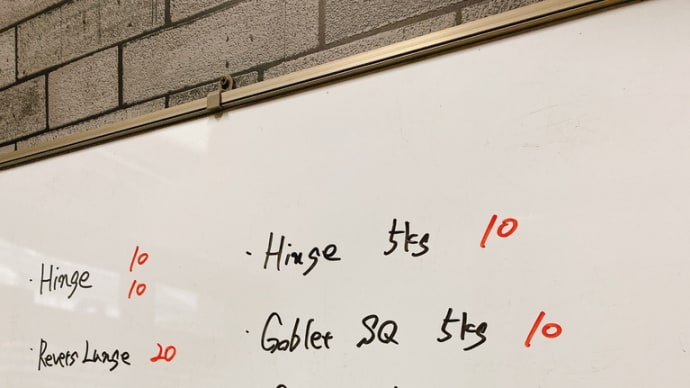 · Hinge 10
10
· Revers Lunge 20
· Hinge 5kg 10
· Goblet SQ 5kg 10